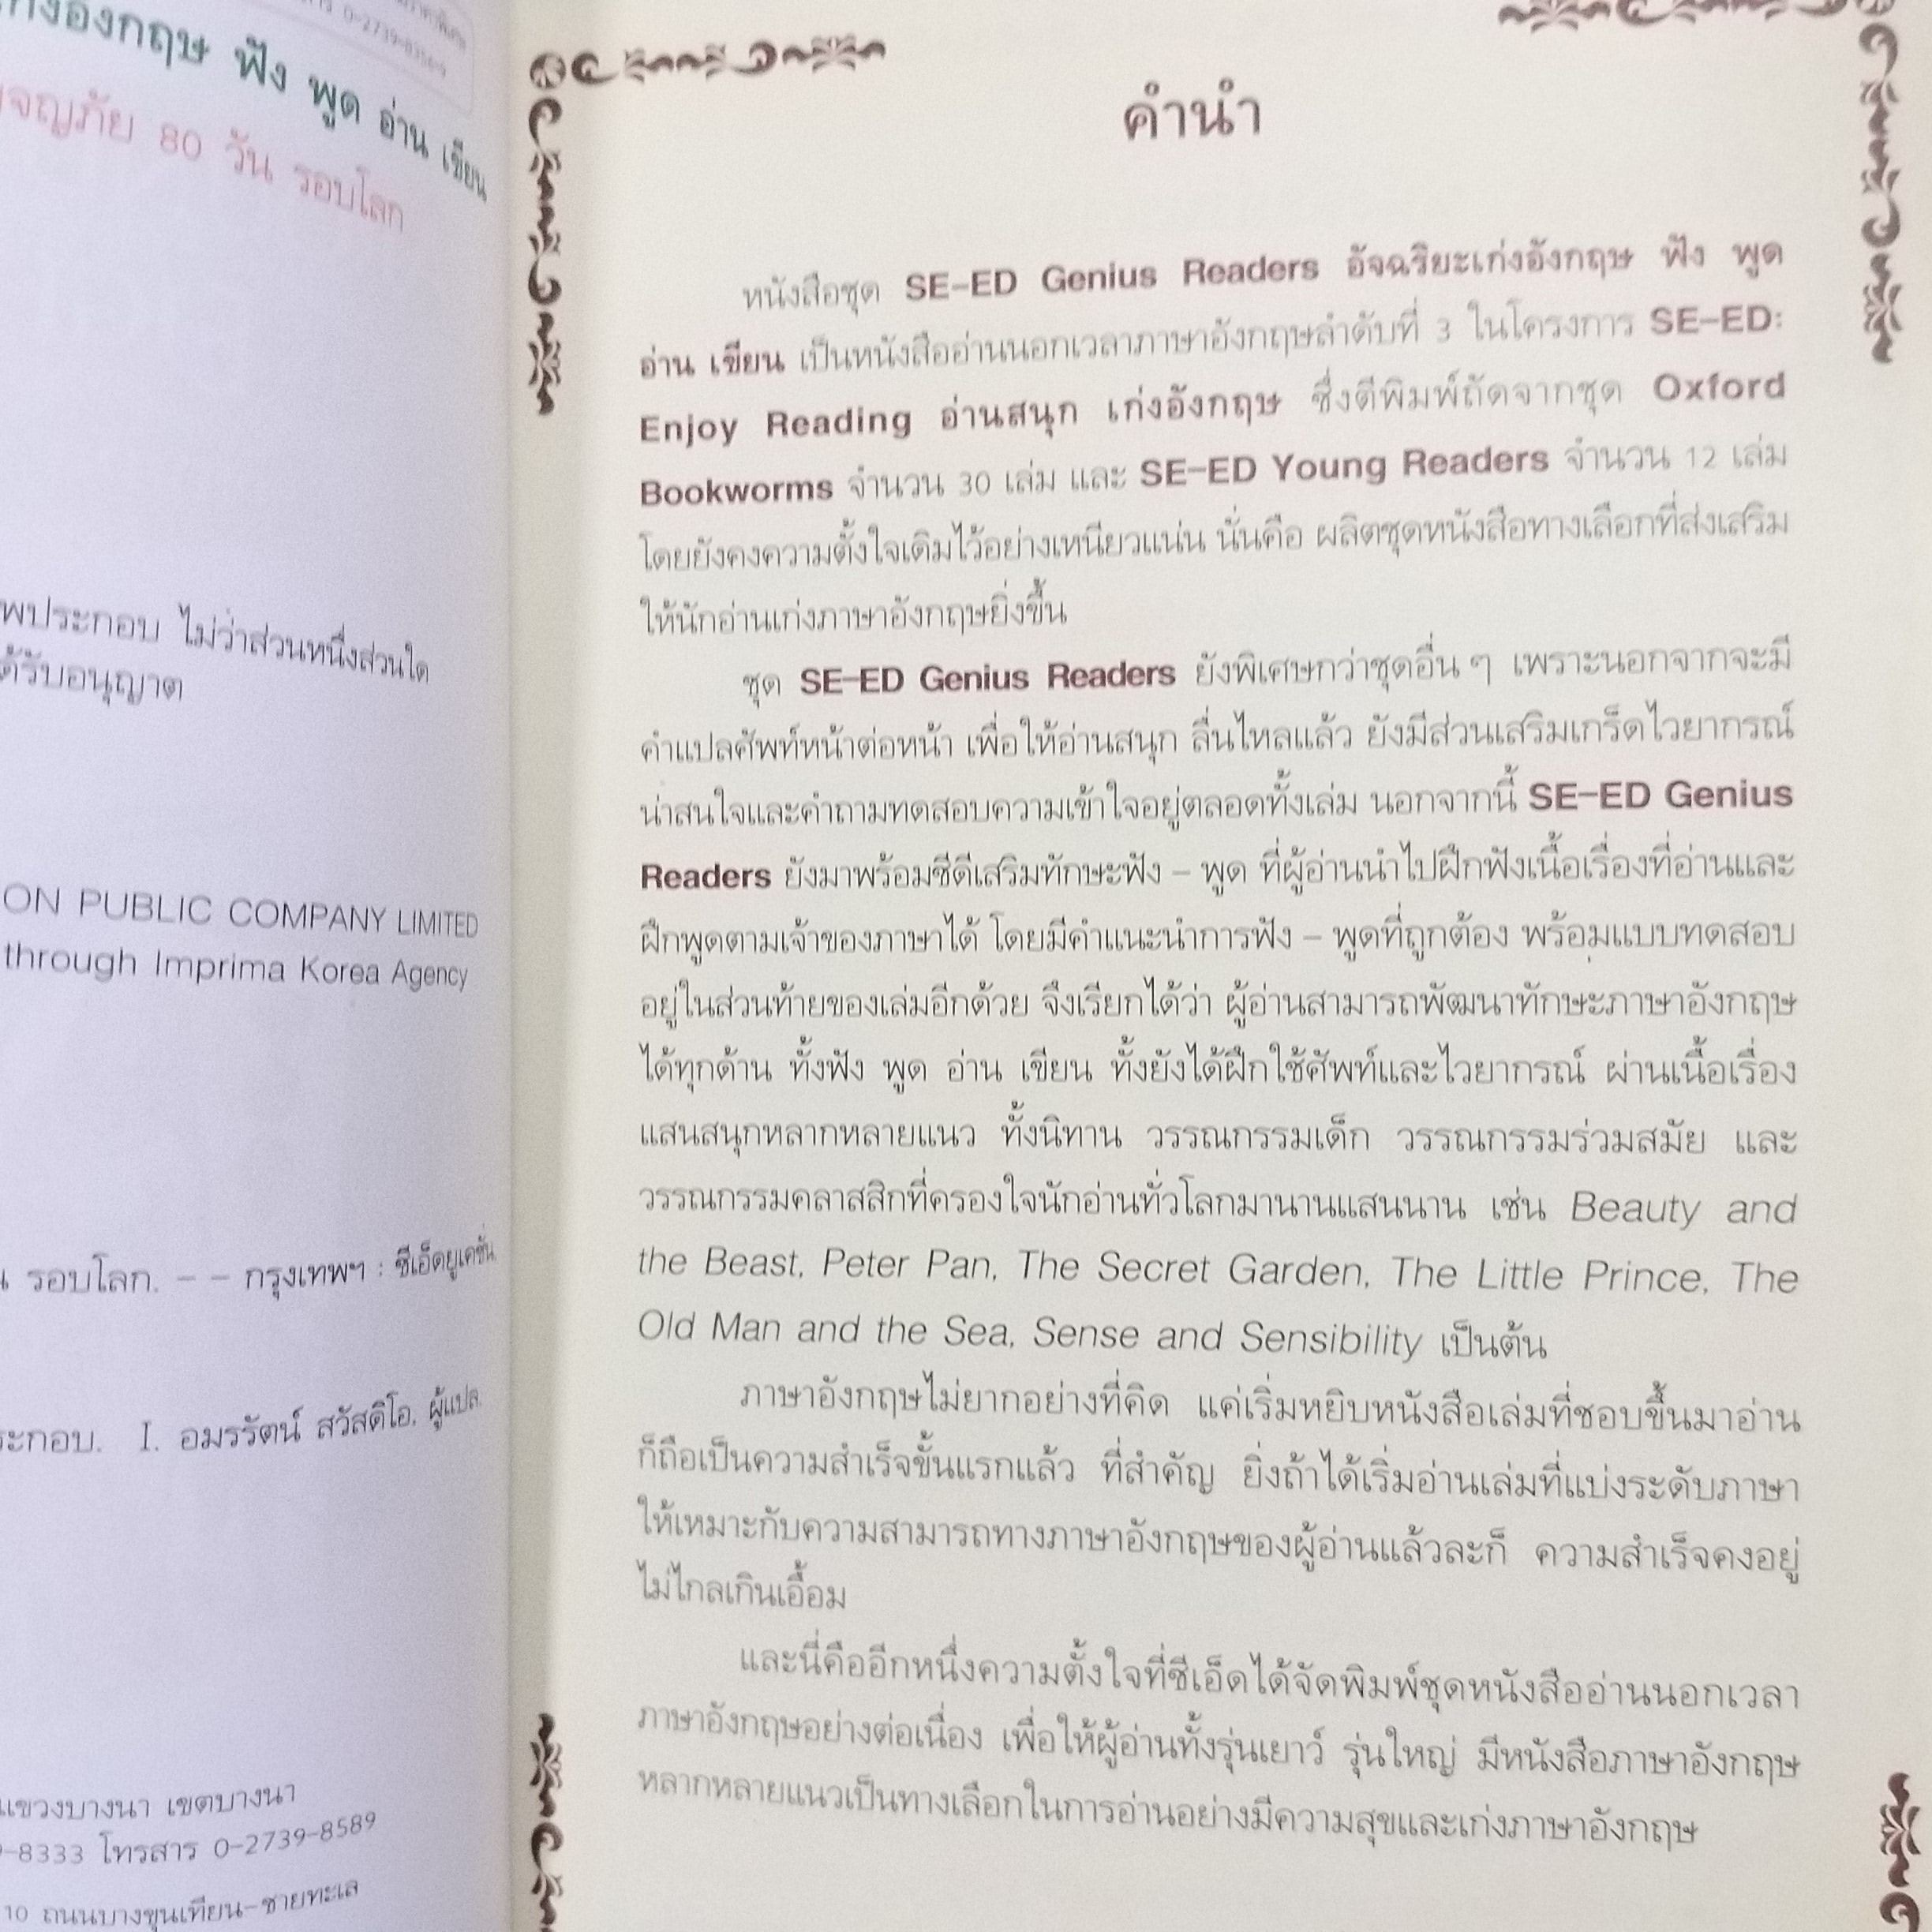 เก่งอังกฤษ ฟัง พูด อ่าน เขียน
ผจญภัย 80 วัน รอบโลก
ไม่ว่าส่วนหนึ่งส่วนใด
ได้รับอนุญาต
ON PUBLIC COMPANY LIMITED
through Imprima Korea Agency
รอบโลก. -- กรุงเทพฯ : ซีเอ็ดยูเคชั่น,
I. อมรรัตน์ สวัสดิโอ, ผู้แปล.
แขวงบางนา เขตบางนา
-8333 โทรสาร 0-2739-8589
10 ถนนบางขุนเทียน-ชายทะเล
คำนำ
หนังสือชุด SE-ED Genius Readers อัจฉริยะเก่งอังกฤษ ฟัง พูด
อ่าน เขียน เป็นหนังสืออ่านนอกเวลาภาษาอังกฤษลำดับที่ 3 ในโครงการ SE-ED:
Enjoy Reading อ่านสนุก เก่งอังกฤษ ซึ่งตีพิมพ์ถัดจากชุด Oxford
Bookworms จำนวน 30 เล่ม และ SE-ED Young Readers จำนวน 12 เล่ม
โดยยังคงความตั้งใจเดิมไว้อย่างเหนียวแน่น นั่นคือ ผลิตชุดหนังสือทางเลือกที่ส่งเสริม
ให้นักอ่านเก่งภาษาอังกฤษยิ่งขึ้น
ชุด SE-ED Genius Readers ยังพิเศษกว่าชุดอื่น ๆ เพราะนอกจากจะมี
คำแปลศัพท์หน้าต่อหน้า เพื่อให้อ่านสนุก ลื่นไหลแล้ว ยังมีส่วนเสริมเกร็ดไวยากรณ์
น่าสนใจและคำถามทดสอบความเข้าใจอยู่ตลอดทั้งเล่ม นอกจากนี้ SE-ED Genius
Readers ยังมาพร้อมซีดีเสริมทักษะฟัง – พูด ที่ผู้อ่านนำไปฝึกฟังเนื้อเรื่องที่อ่านและ
ฝึกพูดตามเจ้าของภาษาได้ โดยมีคำแนะนำการฟัง – พูดที่ถูกต้อง พร้อมแบบทดสอบ
อยู่ในส่วนท้ายของเล่มอีกด้วย จึงเรียกได้ว่า ผู้อ่านสามารถพัฒนาทักษะภาษาอังกฤษ
ได้ทุกด้าน ทั้งฟัง พูด อ่าน เขียน ทั้งยังได้ฝึกใช้ศัพท์และไวยากรณ์ ผ่านเนื้อเรื่อง
แสนสนุกหลากหลายแนว ทั้งนิทาน วรรณกรรมเด็ก วรรณกรรมร่วมสมัย และ
วรรณกรรมคลาสสิกที่ครองใจนักอ่านทั่วโลกมานานแสนนาน เช่น Beauty and
the Beast, Peter Pan, The Secret Garden, The Little Prince, The
Old Man and the Sea, Sense and Sensibility เป็นต้น
ภาษาอังกฤษไม่ยากอย่างที่คิด แค่เริ่มหยิบหนังสือเล่มที่ชอบขึ้นมาอ่าน
ก็ถือเป็นความสำเร็จขั้นแรกแล้ว ที่สำคัญ ยิ่งถ้าได้เริ่มอ่านเล่มที่แบ่งระดับภาษา
ให้เหมาะกับความสามารถทางภาษาอังกฤษของผู้อ่านแล้วละก็ ความสำเร็จคงอยู่
ไม่ไกลเกินเอื้อม
และนี่คืออีกหนึ่งความตั้งใจที่ซีเอ็ดได้จัดพิมพ์ชุดหนังสืออ่านนอกเวลา
ภาษาอังกฤษอย่างต่อเนื่อง เพื่อให้ผู้อ่านทั้งรุ่นเยาว์ รุ่นใหญ่ มีหนังสือภาษาอังกฤษ
หลากหลายแนวเป็นทางเลือกในการอ่านอย่างมีความสุขและเก่งภาษาอังกฤษ